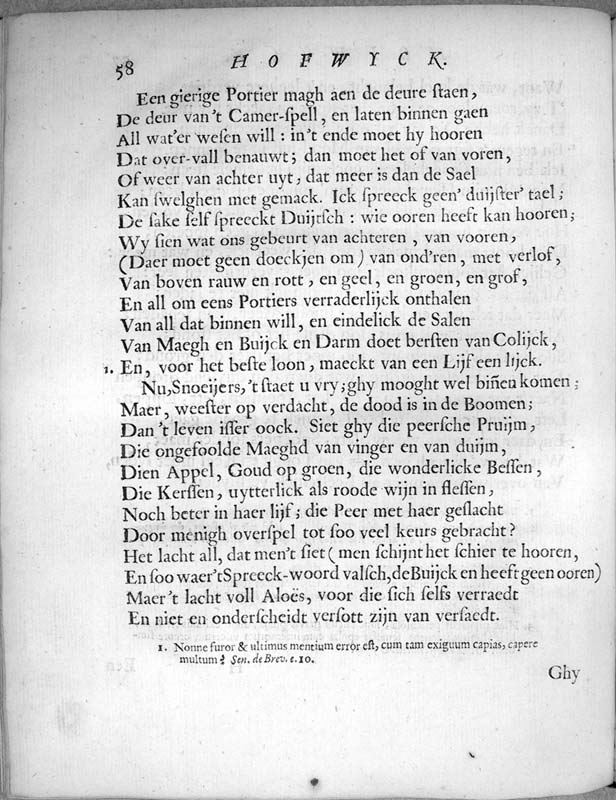 58 HOFWYCK.
Een gierige Portier magh aen de deure ſtaen,
De deur van't Camer-ſpell, en laten binnen gaen
All wat'er weſen will : in't ende moet hy hooren
Dat over-vall benauwt; dan moet het of van voren,
Of weer van achter uyt, dat meer is dan de Sael
Kan ſwelghen met gemack. Ick ſpreeck geen' duijſter' tael;
De ſake ſelf ſpreeckt Duijtſch : wie ooren heeft kan hooren;
Wy ſien wat ons gebeurt van achteren , van vooren,
(Daer moet geen doeckjen om) van ond'ren, met verlof,
Van boven rauw en rott, en geel, en groen, en grof,
En all om eens Portiers verraderlijck onthalen
Van all dat binnen will, en eindelick de Salen
Van Maegh en Buijck en Darm doet berſten van Colijck,
1. En, voor het beſte loon, maeckt van een Lijf een lijck.
Nu, Snoeijers, 't ſtaet u vry; ghy mooght wel biñen komen;
Maer, weeſter op verdacht, de dood is in de Boomen;
Dan 't leven iſſer oock. Siet ghy die peerſche Pruijm,
Die ongefoolde Maeghd van vinger en van duijm,
Dien Appel, Goud op groen, die wonderlicke Beſſen,
Die Kerſſen, uytterlick als roode wijn in fleſſen,
Noch beter in haer lijf; die Peer met haer geſlacht
Door menigh overſpel tot ſoo veel keurs gebracht?
Het lacht all, dat men't ſiet (men ſchijnt het ſchier te hooren,
En ſoo waer't Spreeck-woord valſch, de Buijck en heeft geen ooren)
Maer't lacht voll Aloës, voor die ſich ſelfs verraedt
En niet en onderſcheidt verſott zijn van verſaedt.
1. Nonne furor & ultimus mentium error eſt, cum tam exiguum capias, capere
multum? Sen. de Brev. c. 10.
Ghy